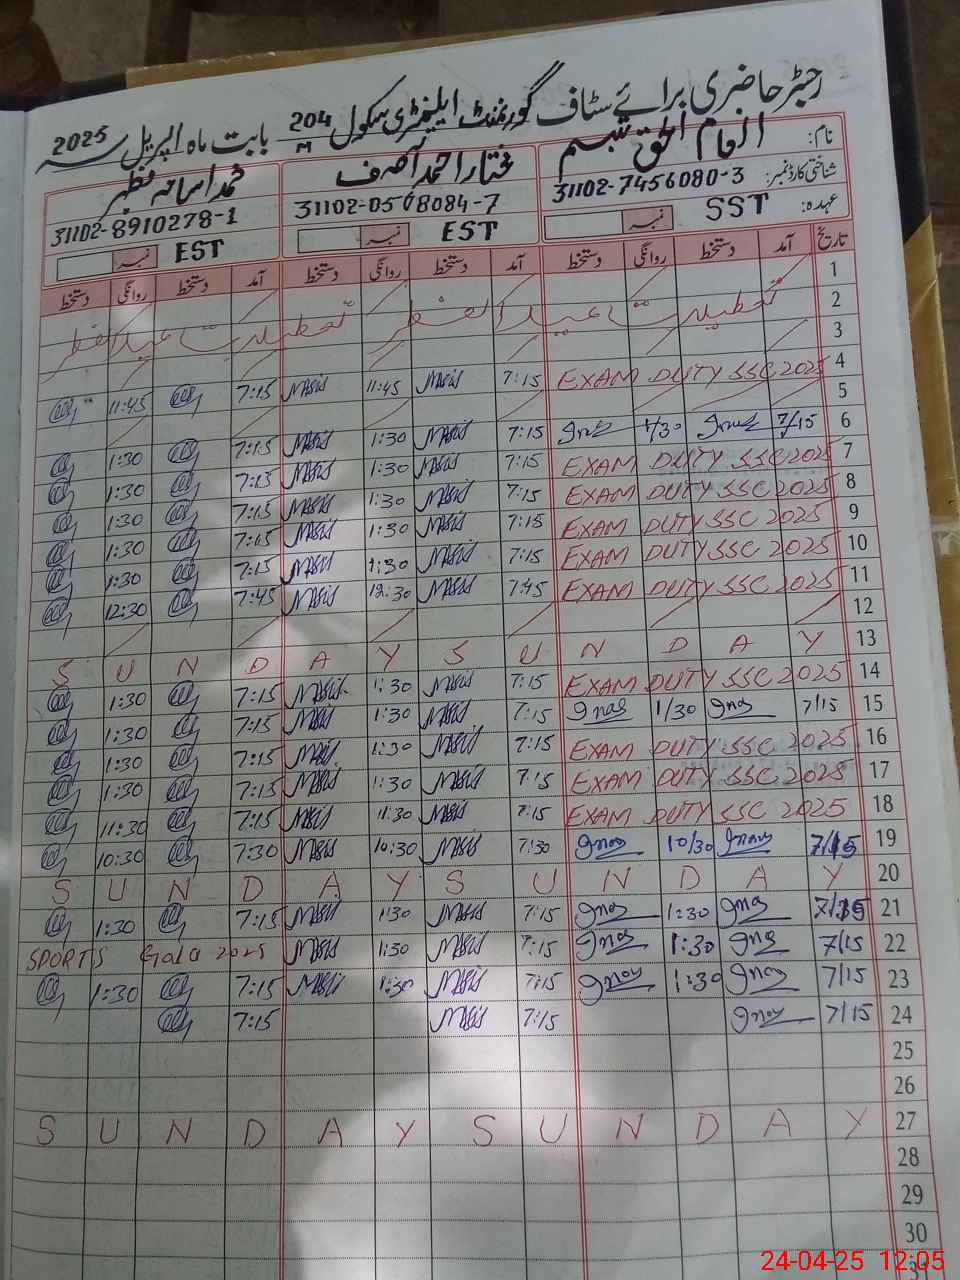 رجسٹر حاضری برائے سٹاف گورنمنٹ ایلیمنٹری سکول 204/M بابت ماہ اپریل سنہ 2025
نام: انعام الحق تبسم مختار احمد آصف محمد اسامہ نظیر
شناختی کارڈ نمبر: 31102-7456080-3 31102-0568084-7 31102-8910278-1
عہدہ: SST نمبر EST نمبر EST نمبر
تاریخ آمد دستخط روانگی دستخط آمد دستخط روانگی دستخط آمد دستخط روانگی دستخط
1
2 تعطیلات عید الفطر تعطیلات عید الفطر
3
4 EXAM DUTY SSC 2025 7:15 11:45 7:15 11:45
5
6 7/15 1/30 7:15 1:30 7:15 1:30
7 EXAM DUTY SSC 2025 7:15 1:30 7:15 1:30
8 EXAM DUTY SSC 2025 7:15 1:30 7:15 1:30
9 EXAM DUTY SSC 2025 7:15 1:30 7:15 1:30
10 EXAM DUTY SSC 2025 7:15 1:30 7:15 1:30
11 EXAM DUTY SSC 2025 7:45 12:30 7:45 12:30
12
13 S U N D A Y S U N D A Y
14 EXAM DUTY SSC 2025 7:15 1:30 7:15 1:30
15 7/15 1/30 7:15 1:30 7:15 1:30
16 EXAM DUTY SSC 2025 7:15 1:30 7:15 1:30
17 EXAM DUTY SSC 2025 7:15 1:30 7:15 1:30
18 EXAM DUTY SSC 2025 7:15 11:30 7:15 11:30
19 7/15 10/30 7:30 10:30 7:30 10:30
20 S U N D A Y S U N D A Y
21 7/15 1:30 7:15 1:30 7:15 1:30
22 7/15 1:30 7:15 1:30 SPORTS Gala 2025
23 7/15 1:30 7:15 1:30 7:15 1:30
24 7/15 7:15 7:15
25
26
27 S U N D A Y S U N D A Y
28
29
30
31
24-04-25 12:05